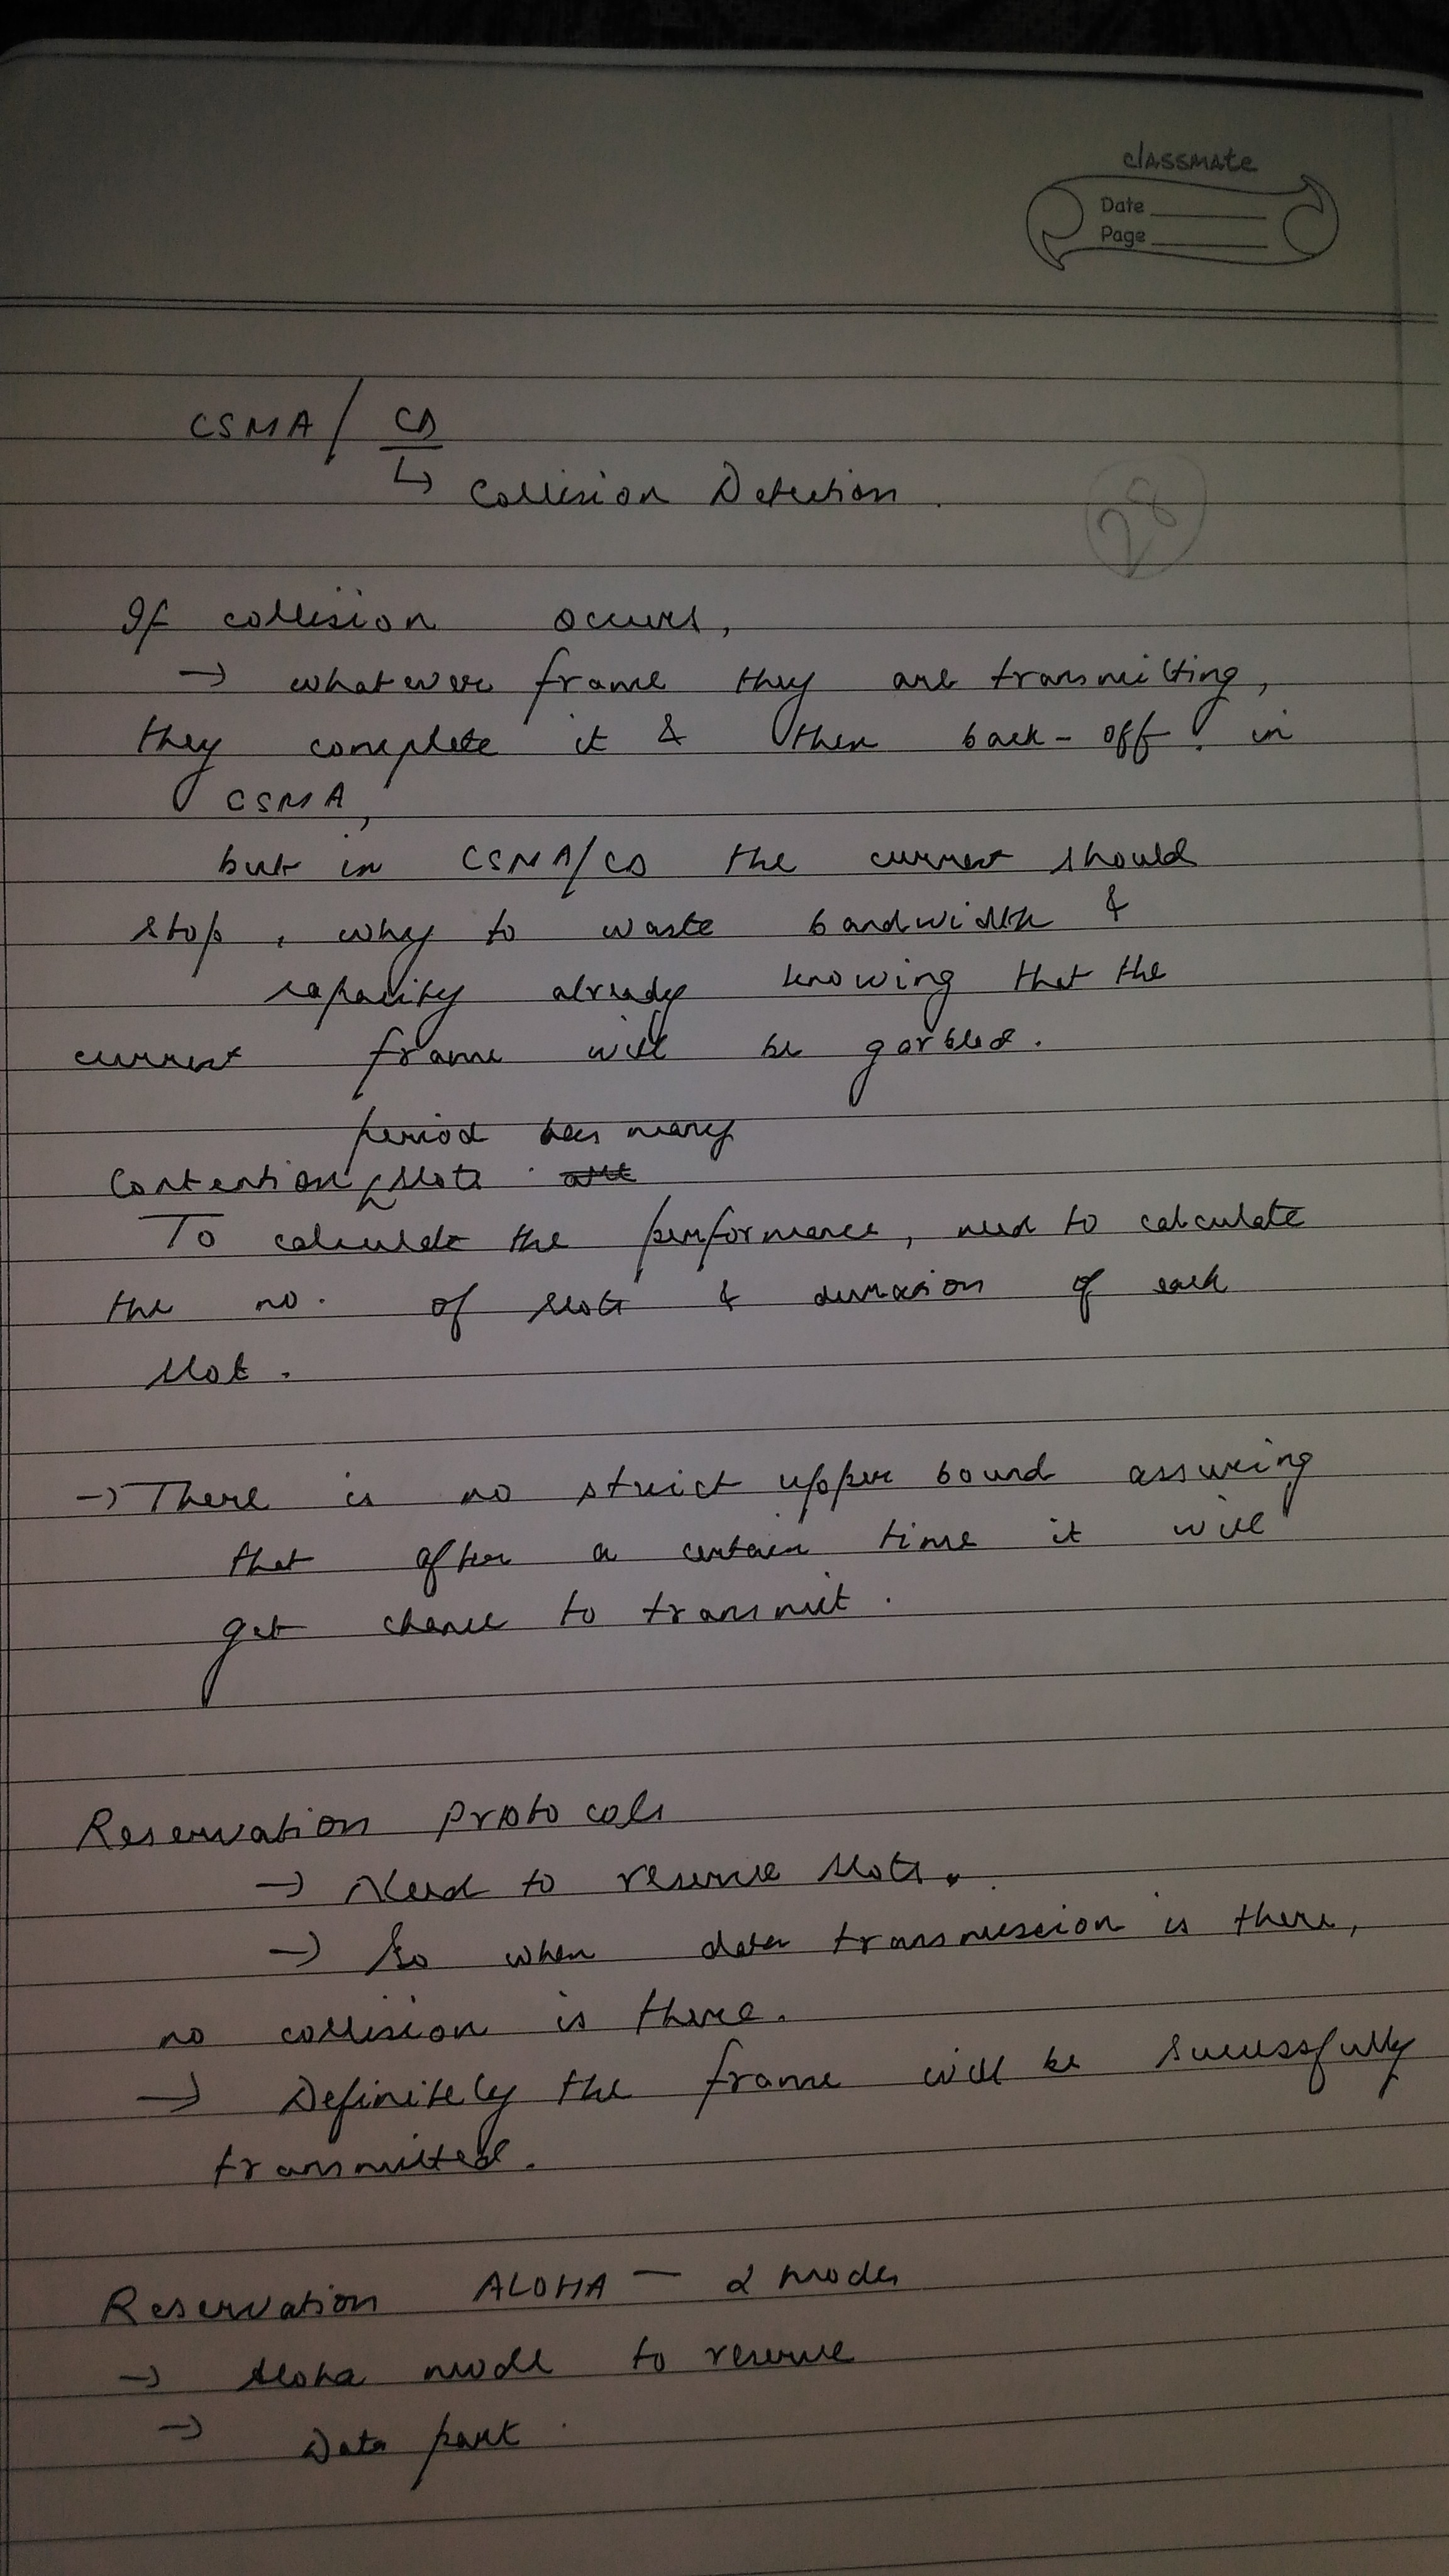 classmate
Date
Page
CSMA / CD
↳ Collision Detection.
28
If collision occurs,
→ whatever frame they are transmitting,
they complete it & then back-off. in
CSMA,
but in CSMA/CD the current should
stop, why to waste bandwidth &
capacity already knowing that the
current frame will be garbled.
period has many
Contention slots
To calculate the performance, need to calculate
the no. of slots & duration of each
slot.
→ There is no strict upper bound assuring
that after a certain time it will
get chance to transmit.
Reservation Protocols
→ Need to reserve slots.
→ So when data transmission is there,
no collision is there.
→ Definitely the frame will be sucessfully
transmitted.
Reservation ALOHA — 2 modes
→ Aloha mode to reserve
→ Data part.